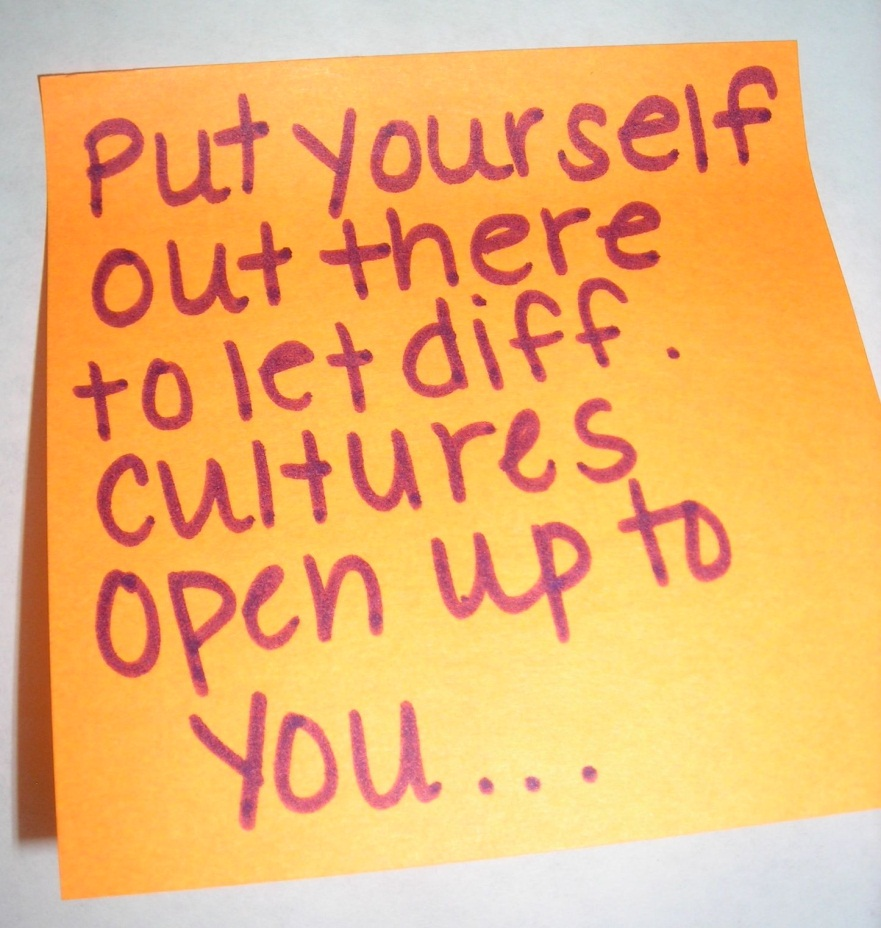 Put yourself
out there
to let diff.
cultures
open up to
you...